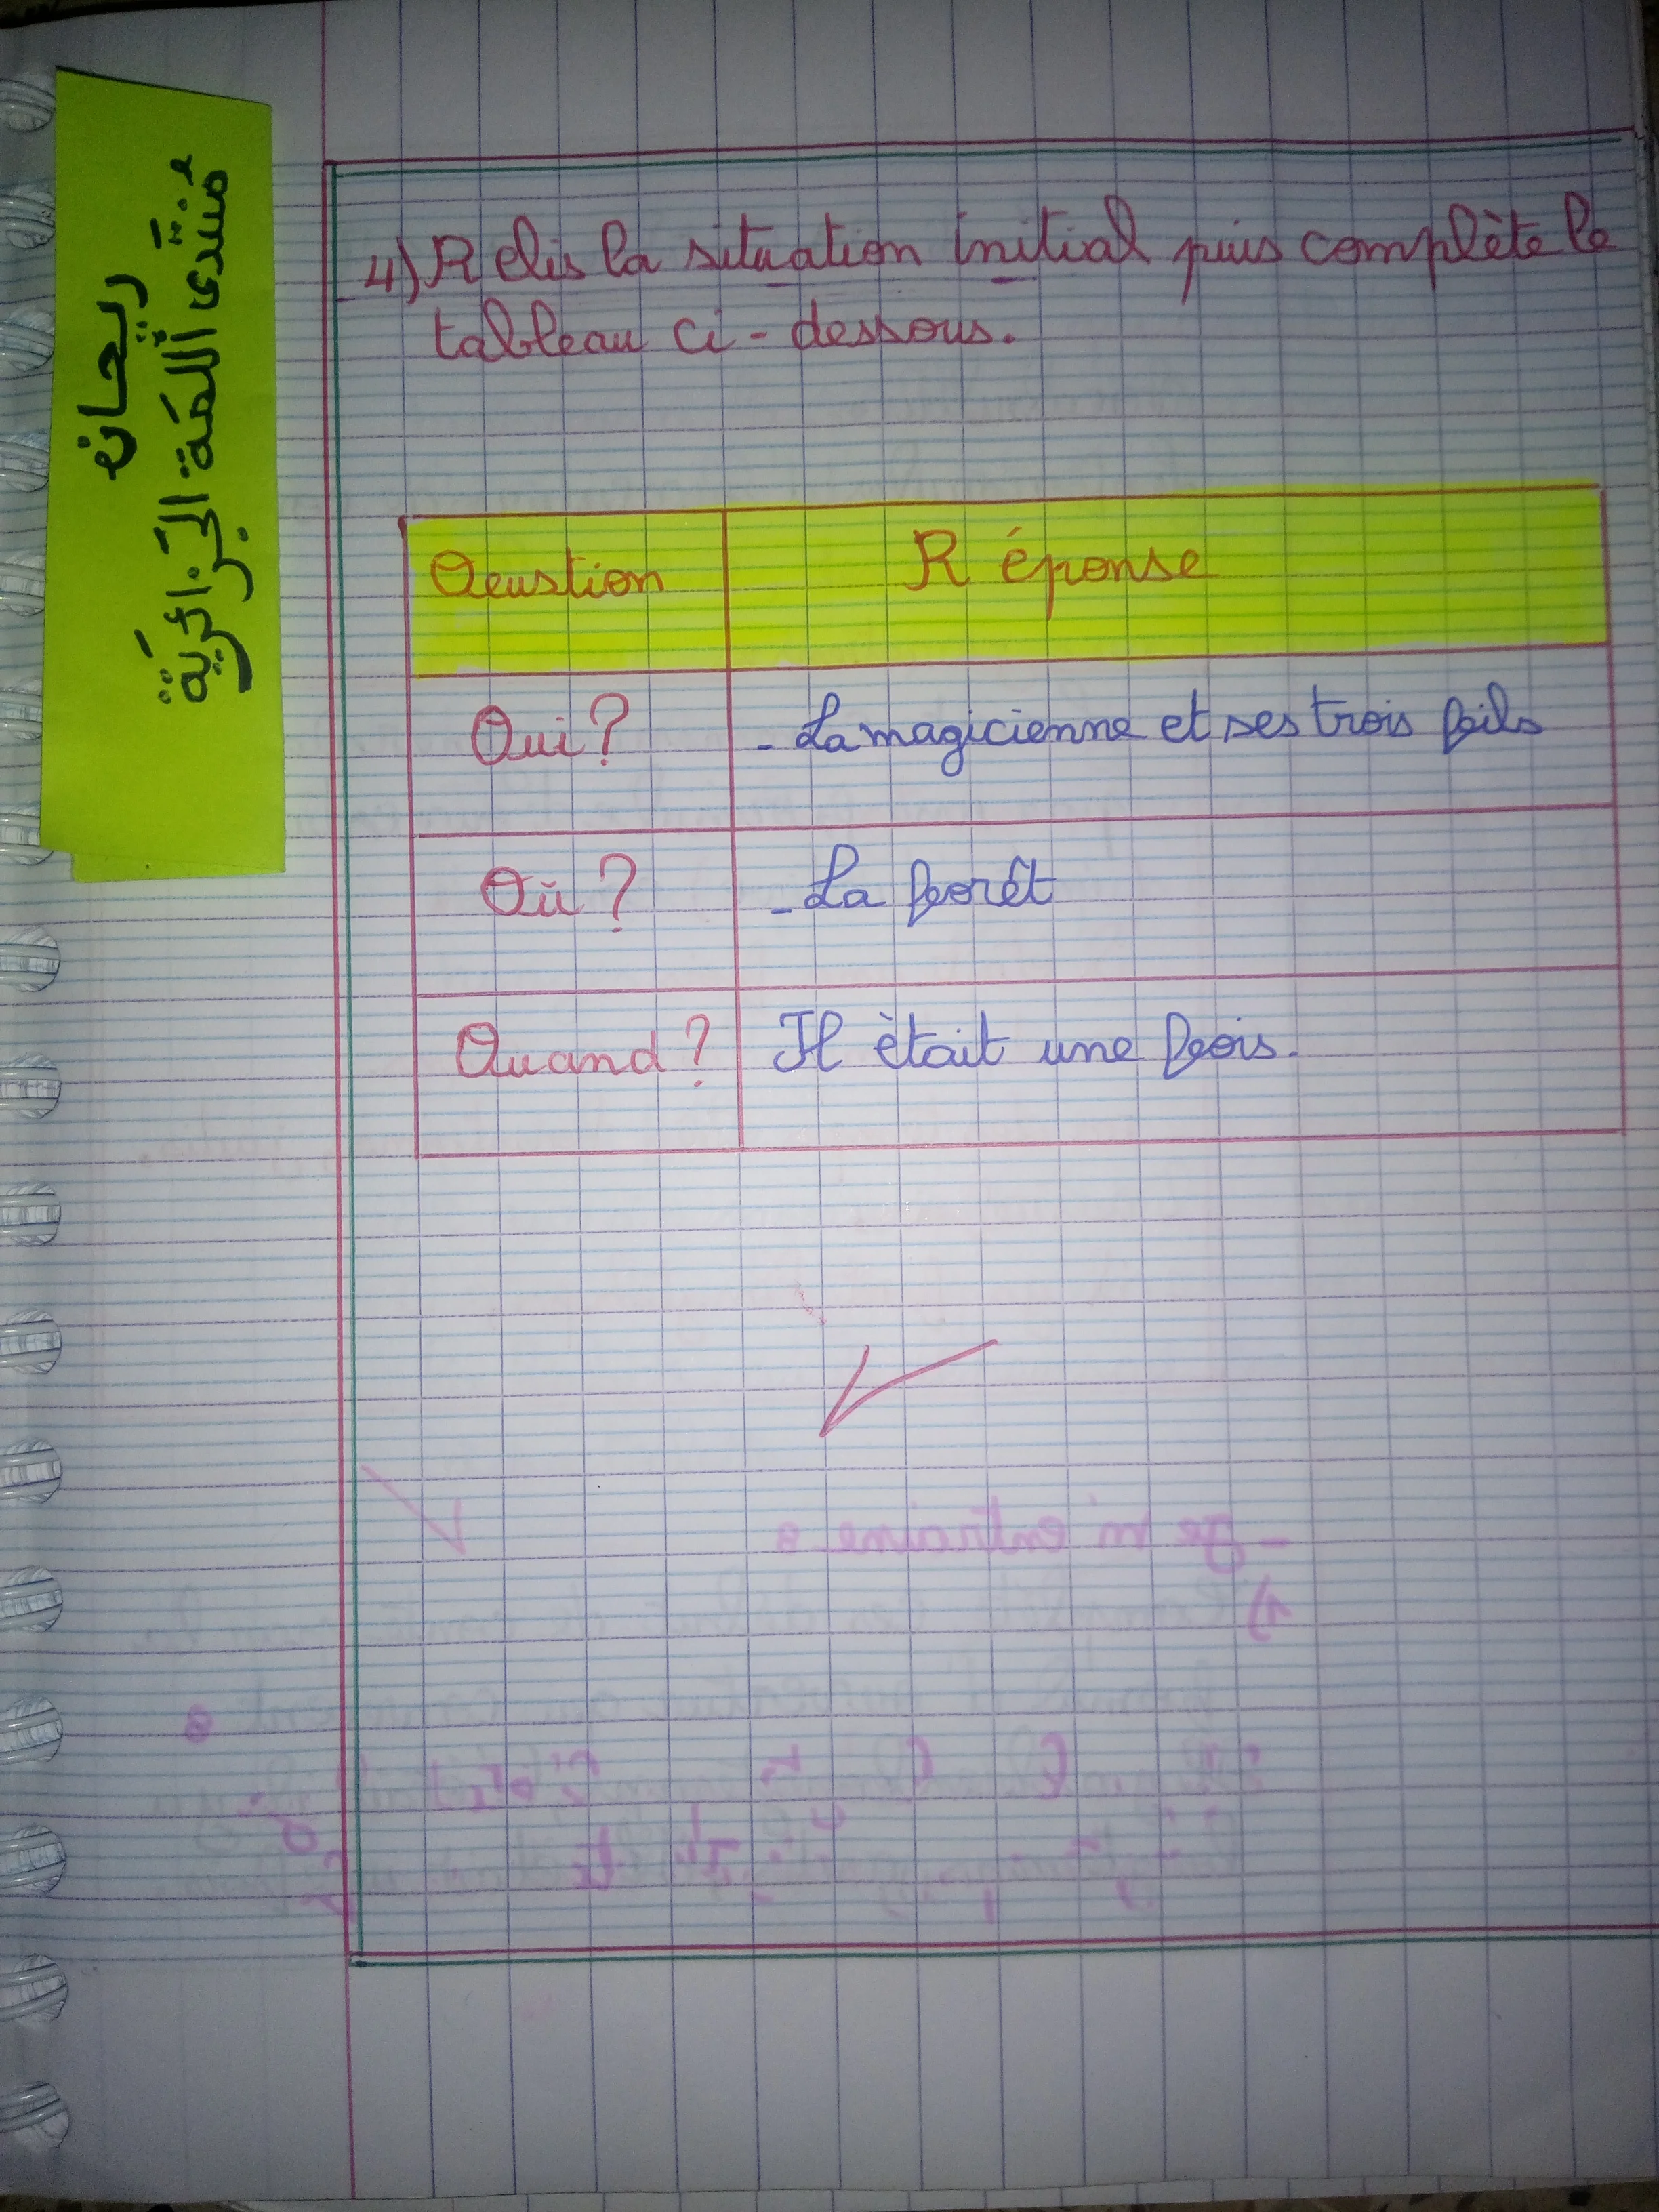 ريحان
منتدى اللمة الجزائرية
4) Relis la situation initial puis complète le
tableau ci-dessous.
Qeustion Réponse
Qui? - La magicienne et ses trois fils
Où? - La forêt
Quand? Il ètait une fois.
- Je m'entraine :
1)